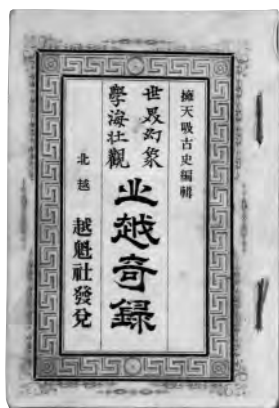 擁天吸古史編輯
世界幻象
學海壮觀
北越奇録
北越 越魁社發兌